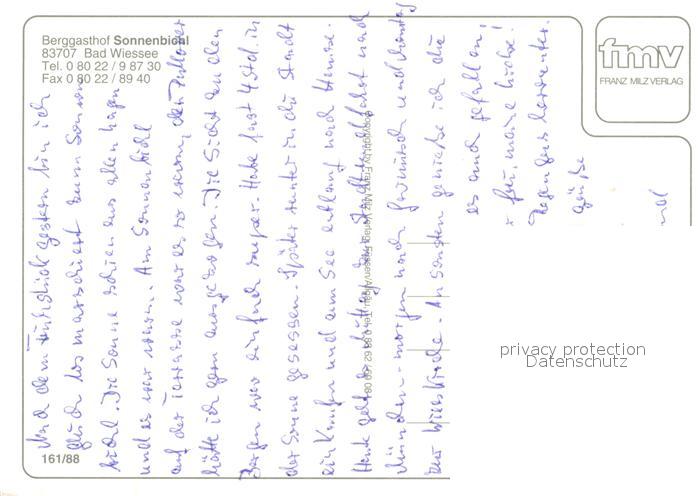 Berggasthof Sonnenbichl
83707 Bad Wiessee
Tel. 0 80 22 / 9 87 30
Fax 0 80 22 / 89 40
fmv
FRANZ MILZ VERLAG
Nach dem Frühstück gestern bin ich
gleich los marschiert zum Sonnen
bichl. Die Sonne schien aus allen
und es war warm. Am Sonnenbichl
auf der Terrasse war es so warm, den Pullover
hätte ich gern ausgezogen. Die Sicht zu den
Bergen war einfach super. Habe fast 4 Std. in
der Sonne gesessen. Später runter in die Stadt
ein Kaufen und am See entlang nach Hause.
Heute geht es Mittag zur Stadtrundfahrt nach
München - morgen nach und
zur Wieskirche. An sonsten genieße ich die
es auch gefallen,
für, meine
grüße
Copyright by Franz Milz Verlag
161/88
privacy protection
Datenschutz